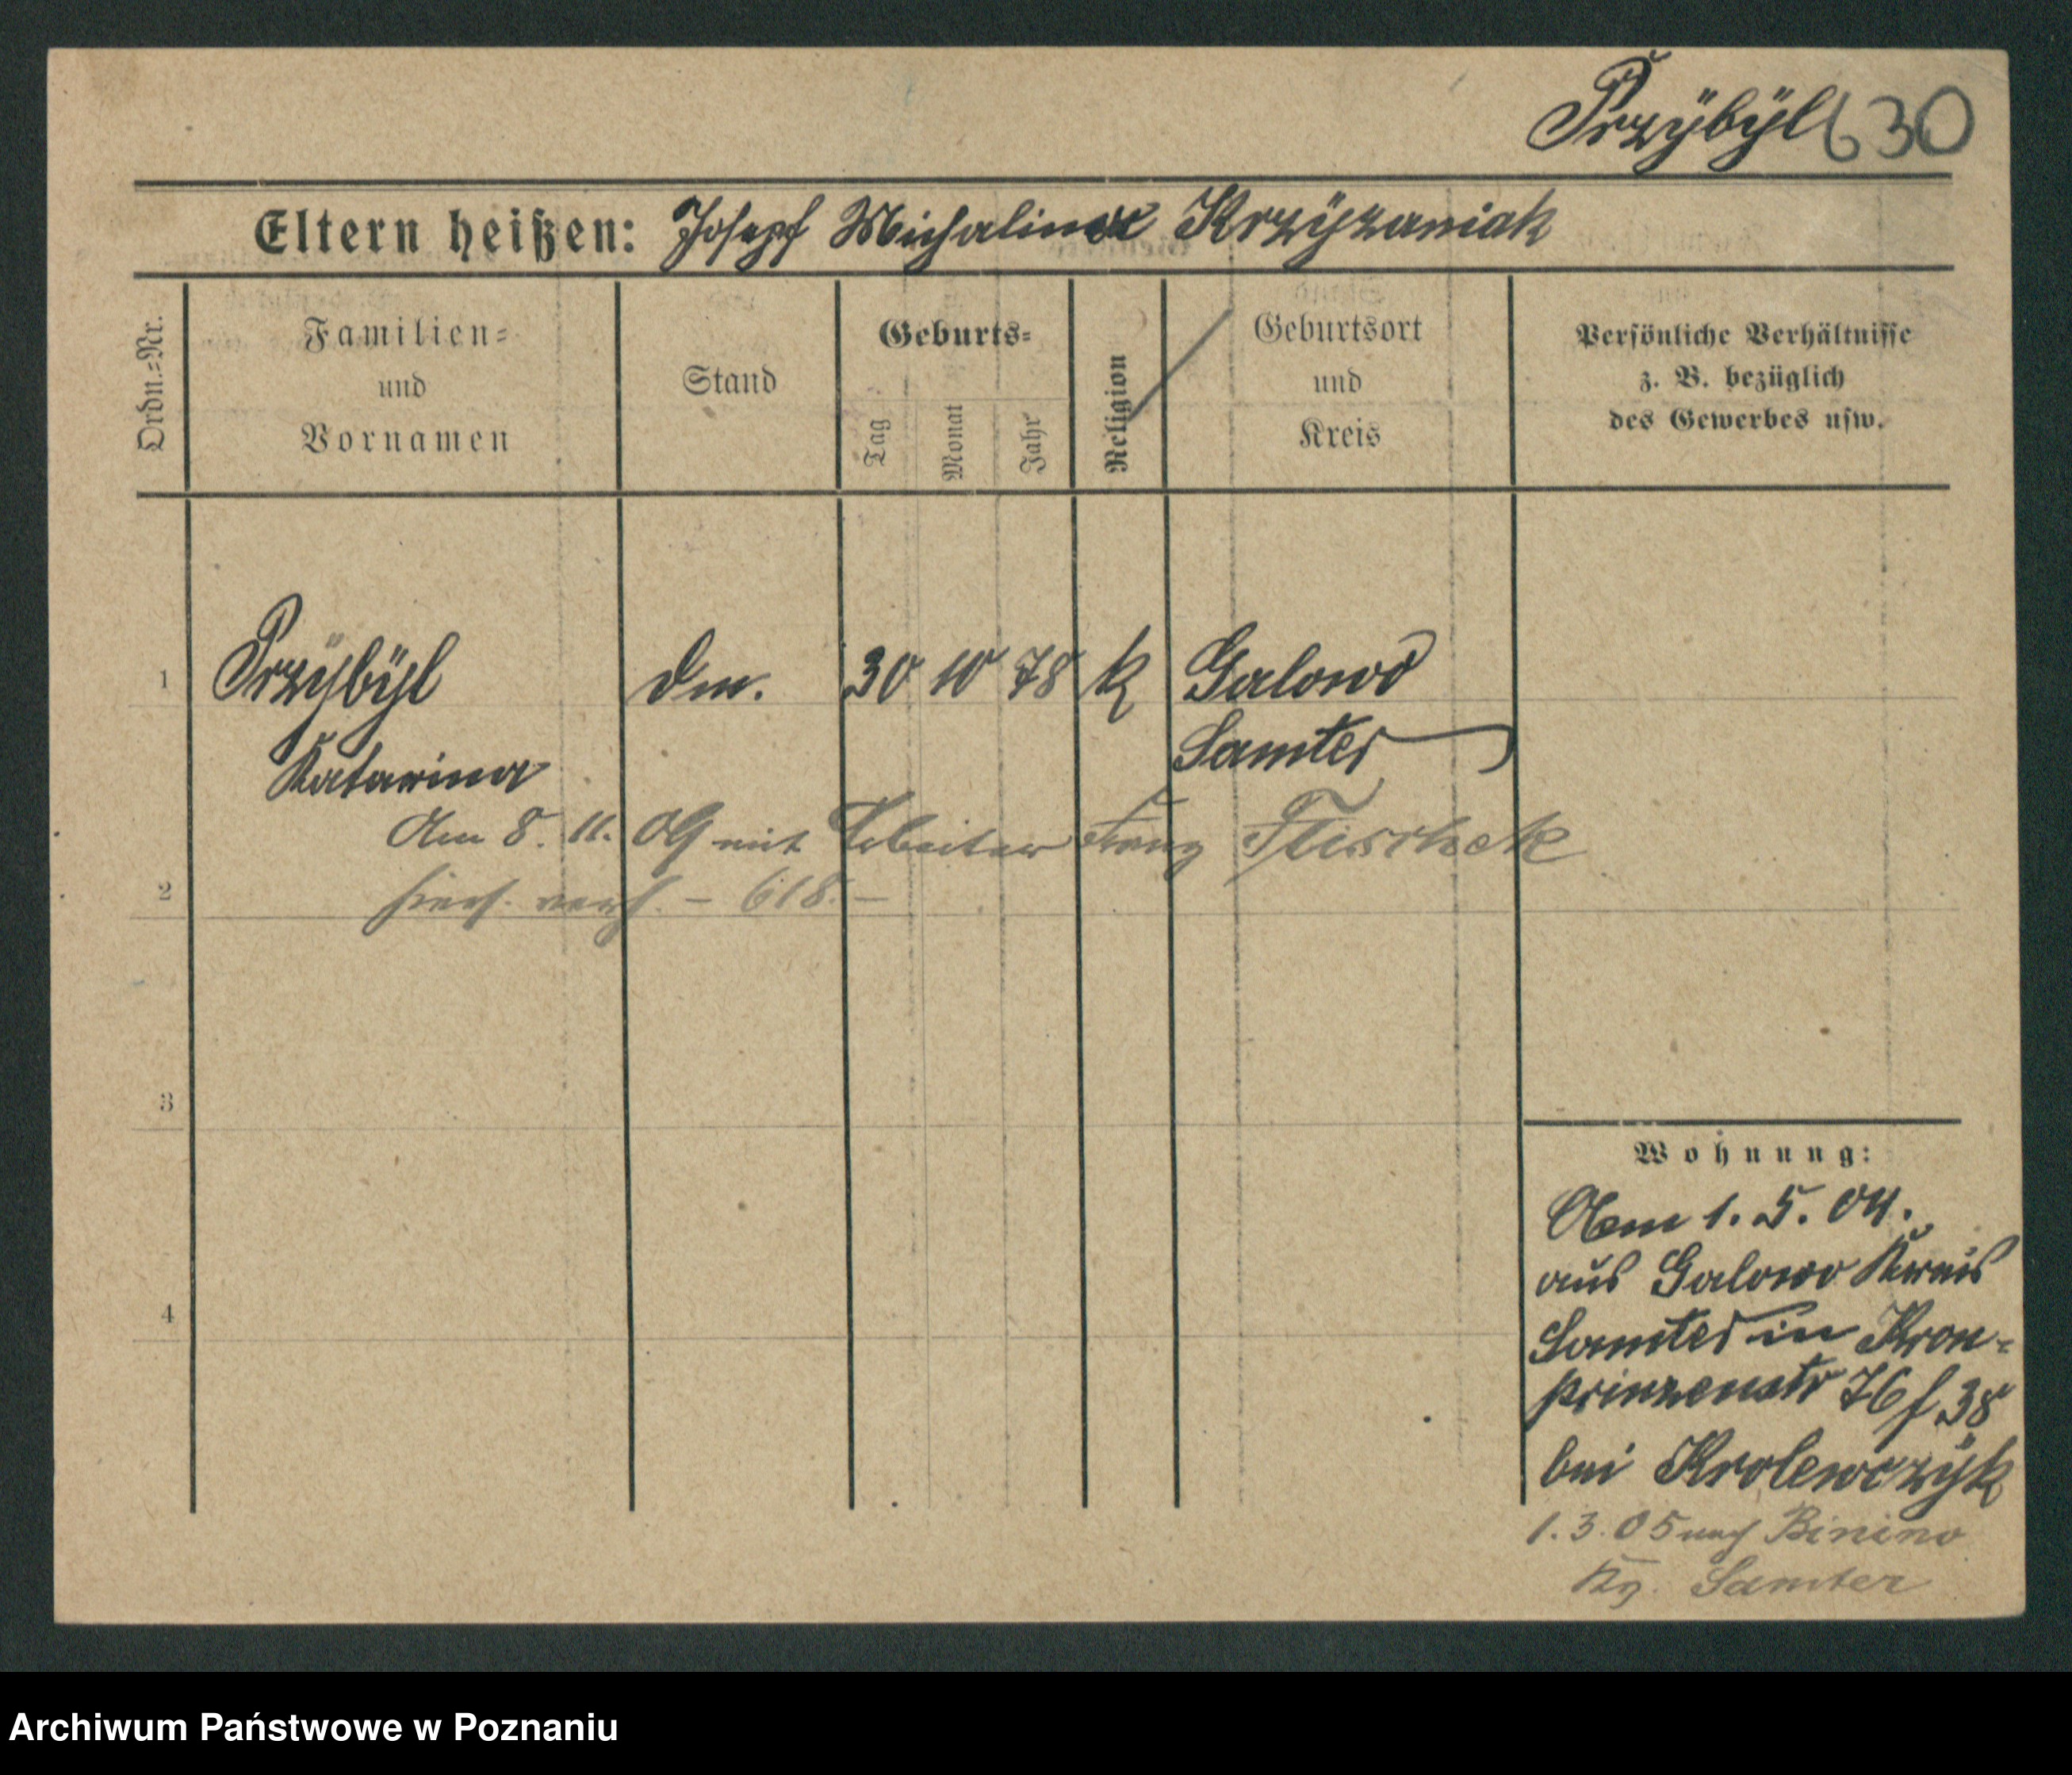 Przÿbÿl 630
Eltern heißen: Josepf Michalina Krzÿzaniak
Ordn.=Nr.
Familien=
und
Vornamen
Stand
Geburts=
Tag
Monat
Jahr
Religion
Geburtsort
und
Kreis
Persönliche Verhältnisse
z. B. bezüglich
des Gewerbes usw.
1 Przÿbÿl 30 10 78 k Galowo
Katarina Samter
Am 8. 11. 09 mit Arbeiter Franz
2 verh. – 618. –
3
4
Wohnung:
Am 1. 5. 04.
aus Galowo Kreis
Samter in Kron-
prinzenstr 76 f 38
bei Krolewczÿk
1. 3. 05 nach Binino
Kr. Samter
Archiwum Państwowe w Poznaniu